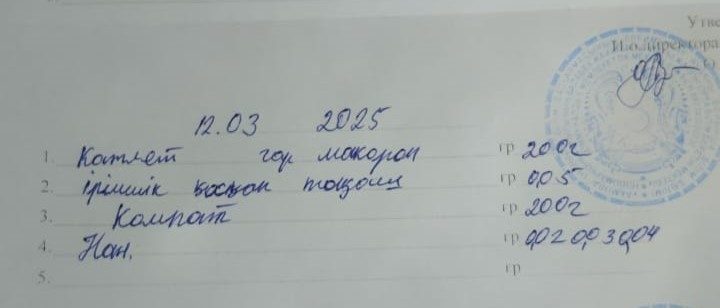 Утве
И.о.директора
12.03 2025
1. Катлет гор макорон гр 200г
2. ірімшік қосқан тоқаш гр 0,05
3. Компот гр 200г
4. Нан. гр 0,02 0,03 0,04
5. гр